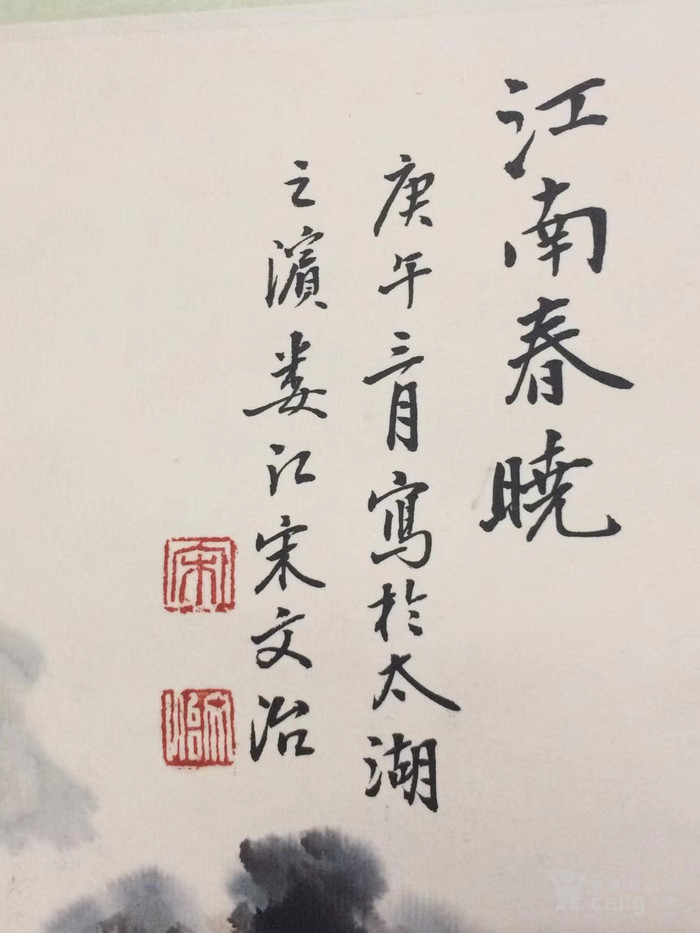 江南春曉
庚午三月寫於太湖
之濱婁江宋文治
宋
文治